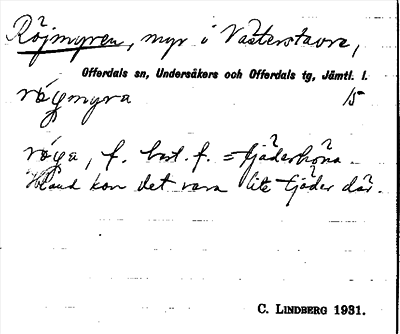 Röjmyren, myr i Västerstavre,
Offerdals sn, Undersåkers och Offerdals tg, Jämtl. l.
rö́gmyra 15
rö́ga, f. best. f. = tjäderhöna.
Ibland kan det vara lite tjäder där.
C. LINDBERG 1931.